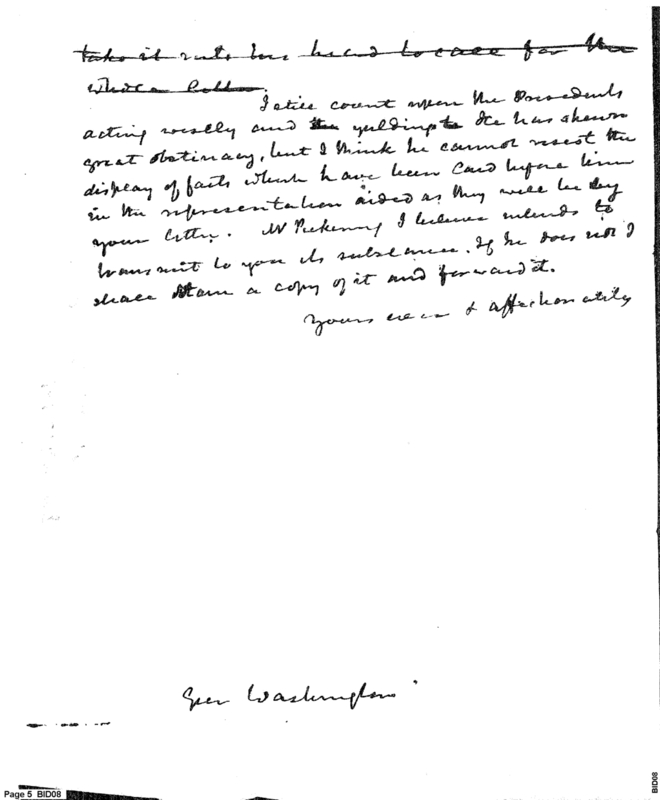 take it into his head to call for the
whole letter.
I still count upon the Presidents
acting wisely and the yielding to He has shewn
great obstinacy, but I think he cannot resist the
display of facts which have been laid before him
in the representation aided as they will be by
your letter. Mr Pickering I believe intends to
transmit to you its substance. If he does not I
shall obtain a copy of it and forward it.
Yours ever & affectionately
Gen Washington
Page 5 BID08
BID08